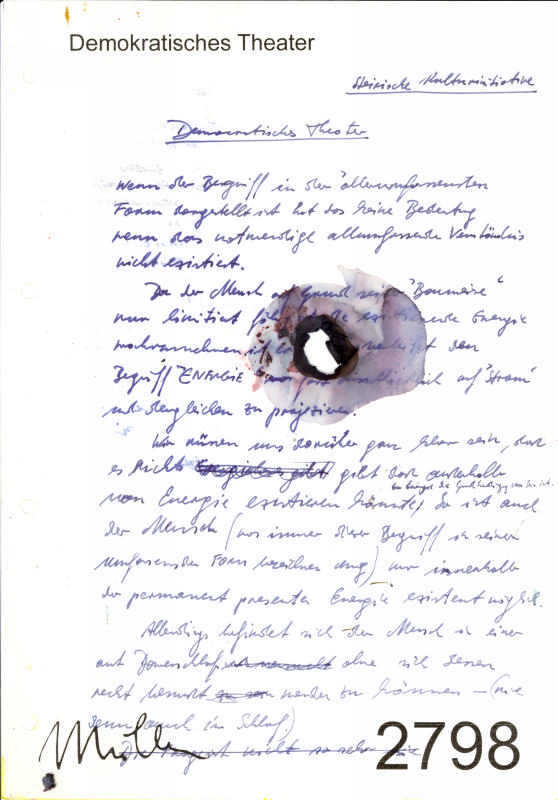 Demokratisches Theater
Steirische Kulturinitiative
Democratisches Theater
Wenn der Begriff in der "allerumfassensten
Form dargestellt ist hat das keine Bedeutung
wenn das notwendige allumfassende Verständnis
nicht existiert.
Da der Mensch auf Grund seiner "Bauweise"
nur limitiert die existierende Energie
wahrzunehmen ist den
Begriff "ENERGIE" fast ausschließlich auf "Strom"
und dergleichen zu projezieren.
Wir müssen uns darüber ganz klar sein, dass
es Nichts gibt dass außerhalb
von Energie existieren könnte, da
die Energie die ist.
So ist auch
der Mensch (was immer dieser Begriff in seiner
umfassenden Form bezeichnen mag) nur innerhalb
der permanent presenten Energie existent möglich.
Allerdings befindet sich der Mensch in einer
art Dauerschlaf ohne sich dessen
recht bewusst werden zu können – (wie
denn auch im Schlaf.)
2798